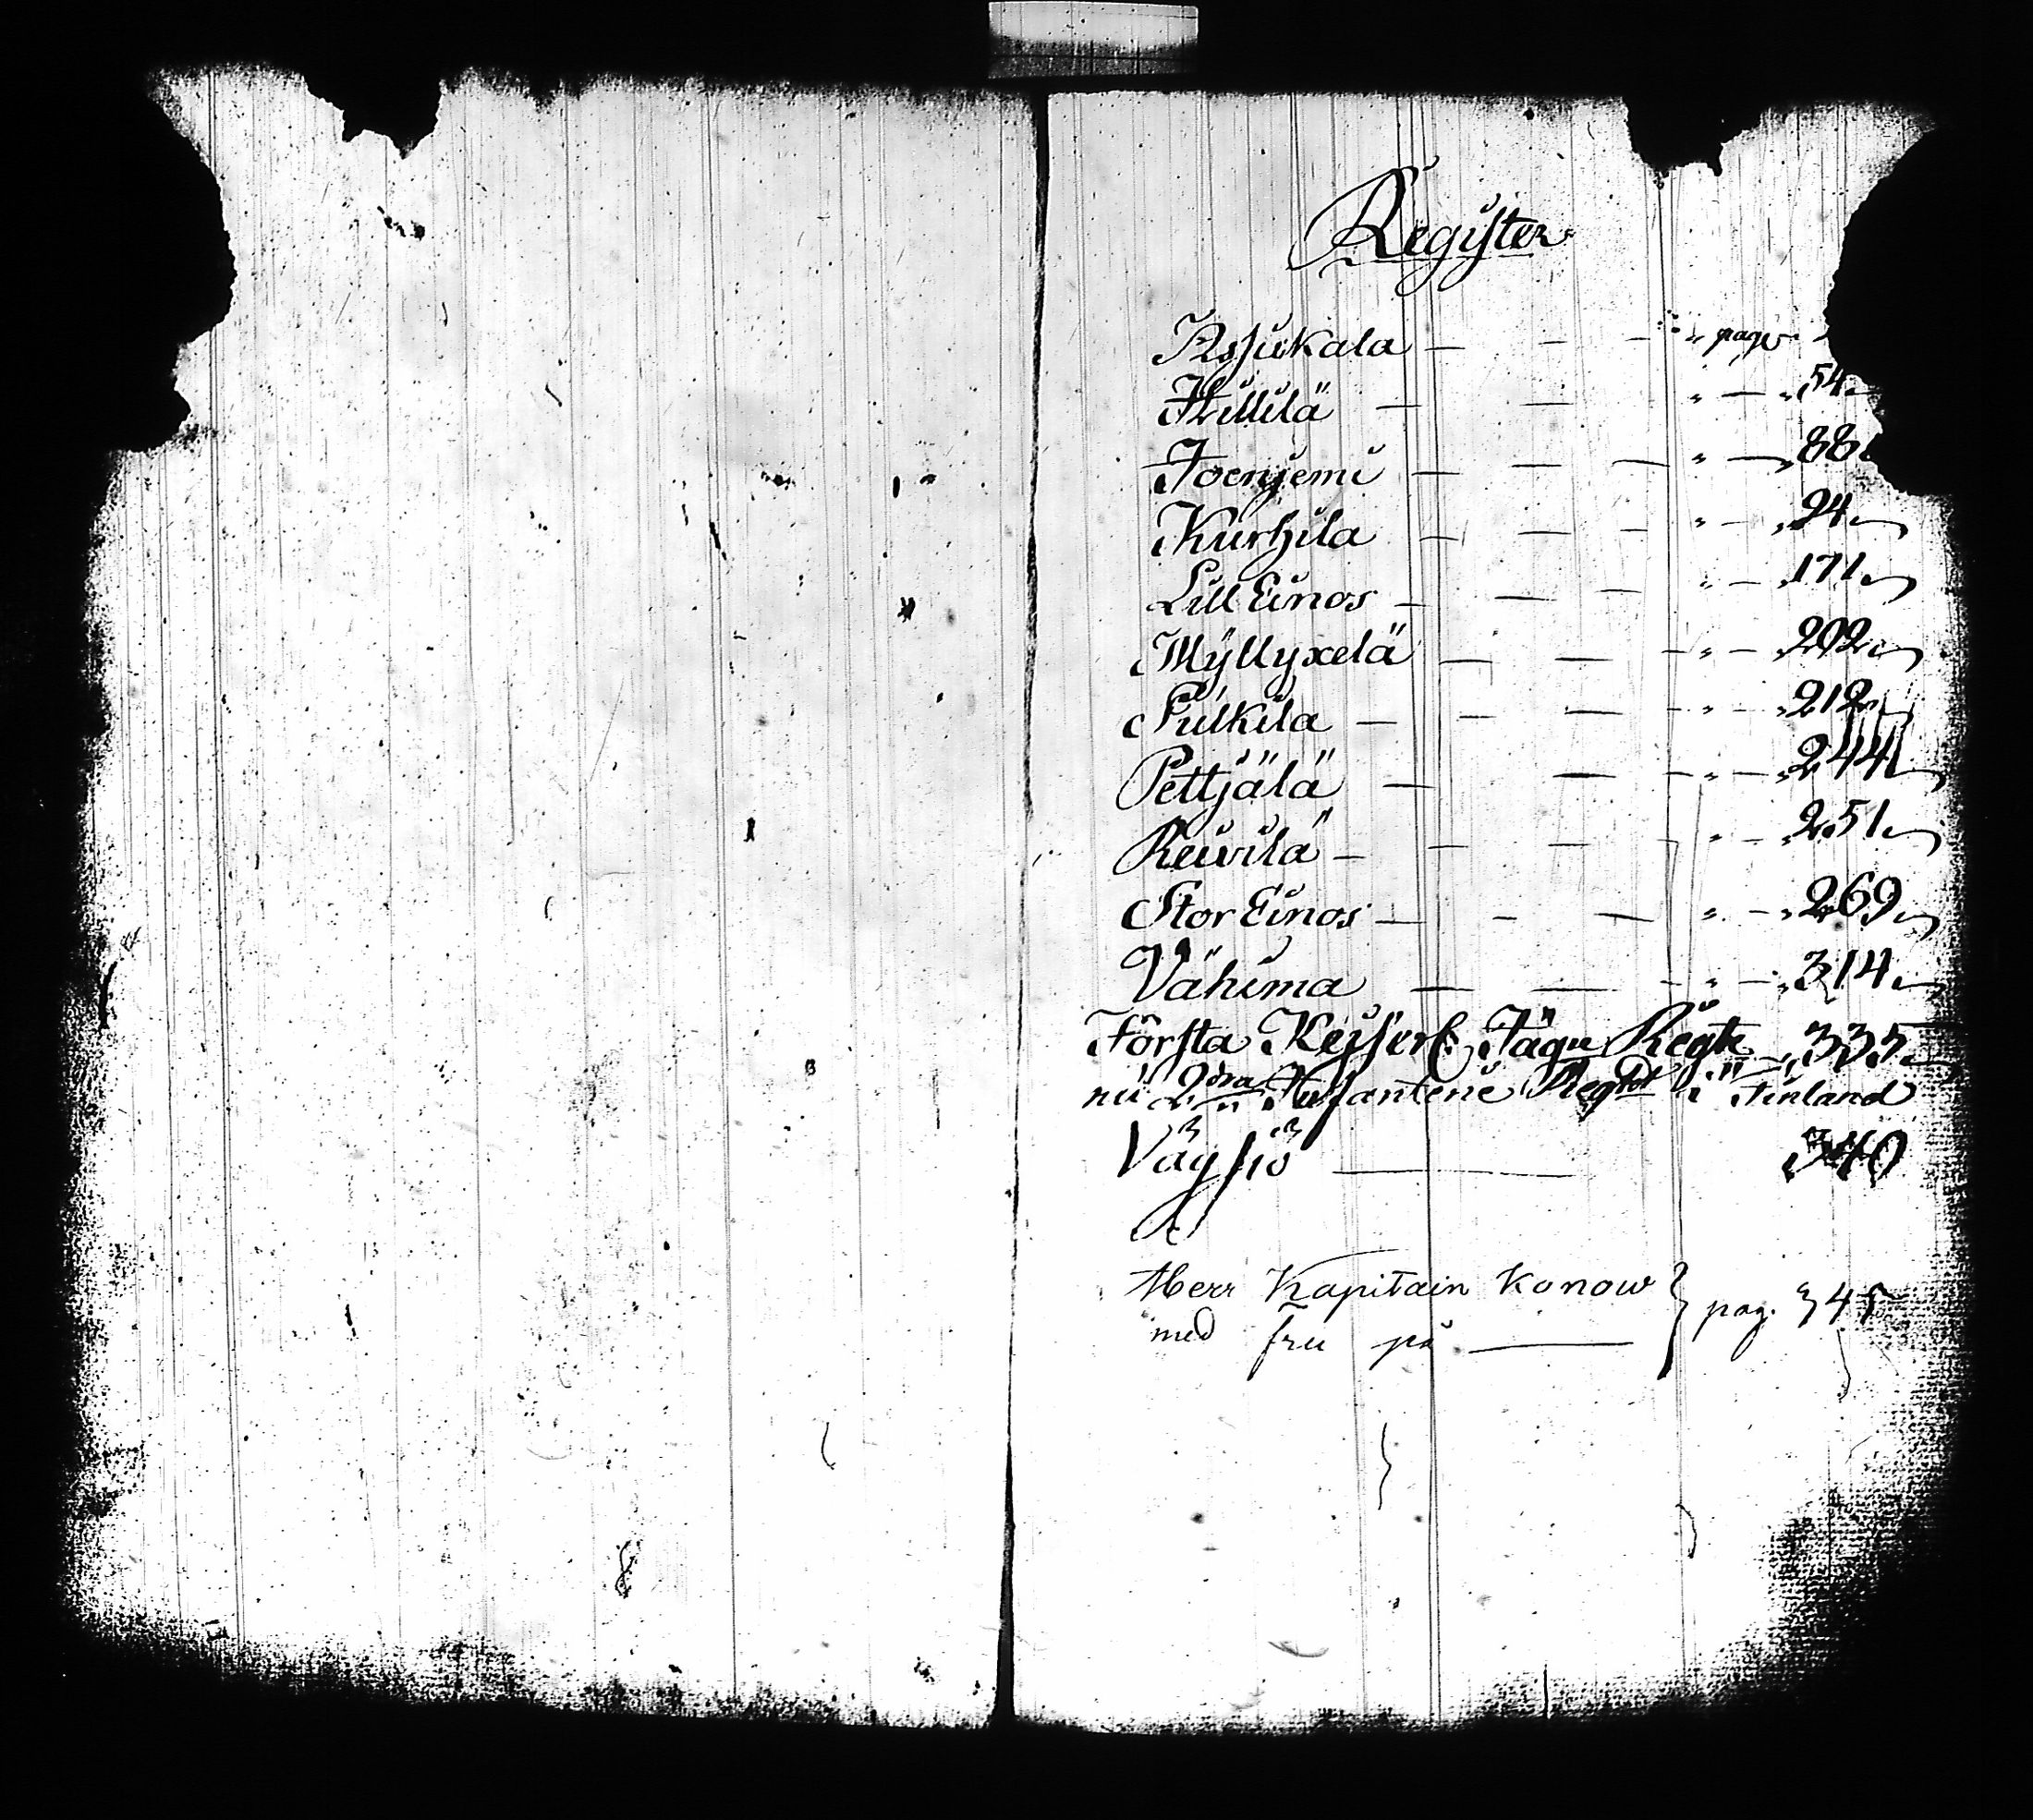 Register
Issukala — — — " page
Hillilä — — " — " 54
Joenjemi — — — " — " 88
Kurhila — — — " — " 94
Lill Einos — — — " — " 171
Myllyxelä — — — " — " 202
Pulkila — — — — " — " 212
Pettjälä — — — " — " 244
Reivilä — — — — " — " 251
Stor Einos — — — " — " 269
Vähima — — — " — " 314
Första Kejserl. Jäga Regte — " 335
nu 2dra Infanterie Regtet i Finland
Vägsjö — — 340
Herr Kapitain Konow } pag. 345
med fru på —